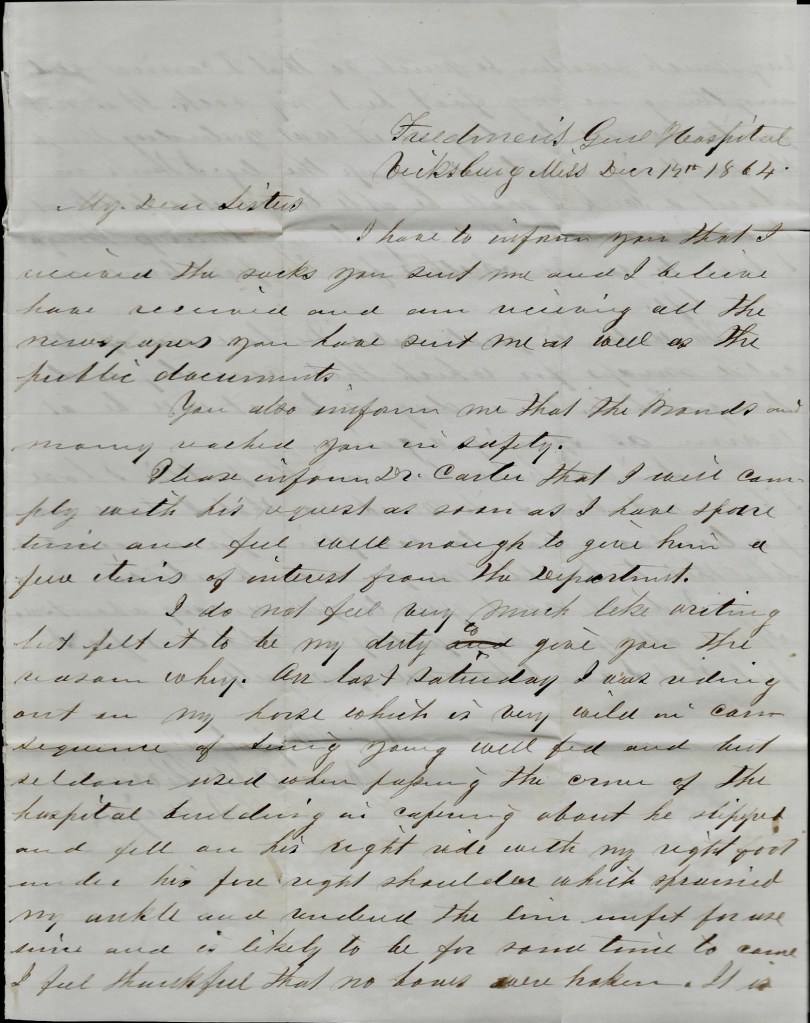 Freedmen's Genl Hospital
Vicksburg Miss Decr 14th 1864.
My Dear Sisters
I have to inform you that I
received the socks you sent me and I believe
have received and am reciving all the
newspapers you have sent me as well as the
public documents
You also inform me that the Bonds and
money reached you in safety.
Please inform Dr. Carter that I will com-
ply with his request as soon as I have spare
time and feel well enough to give him a
few items of interest from the Department.
I do not feel very much like writing
but felt it to be my duty to give you the
reason why. On last Saturday I was riding
out on my horse which is very wild in con
sequence of being young well fed and but
seldom used when passing the corner of the
hospital building in capering about he slipped
and fell on his right side with my right foot
under his fore right shoulder which sprained
my ankle and rendered the limb unfit for use
since and is likely to be for some time to come
I feel thankful that no bones were broken. It is